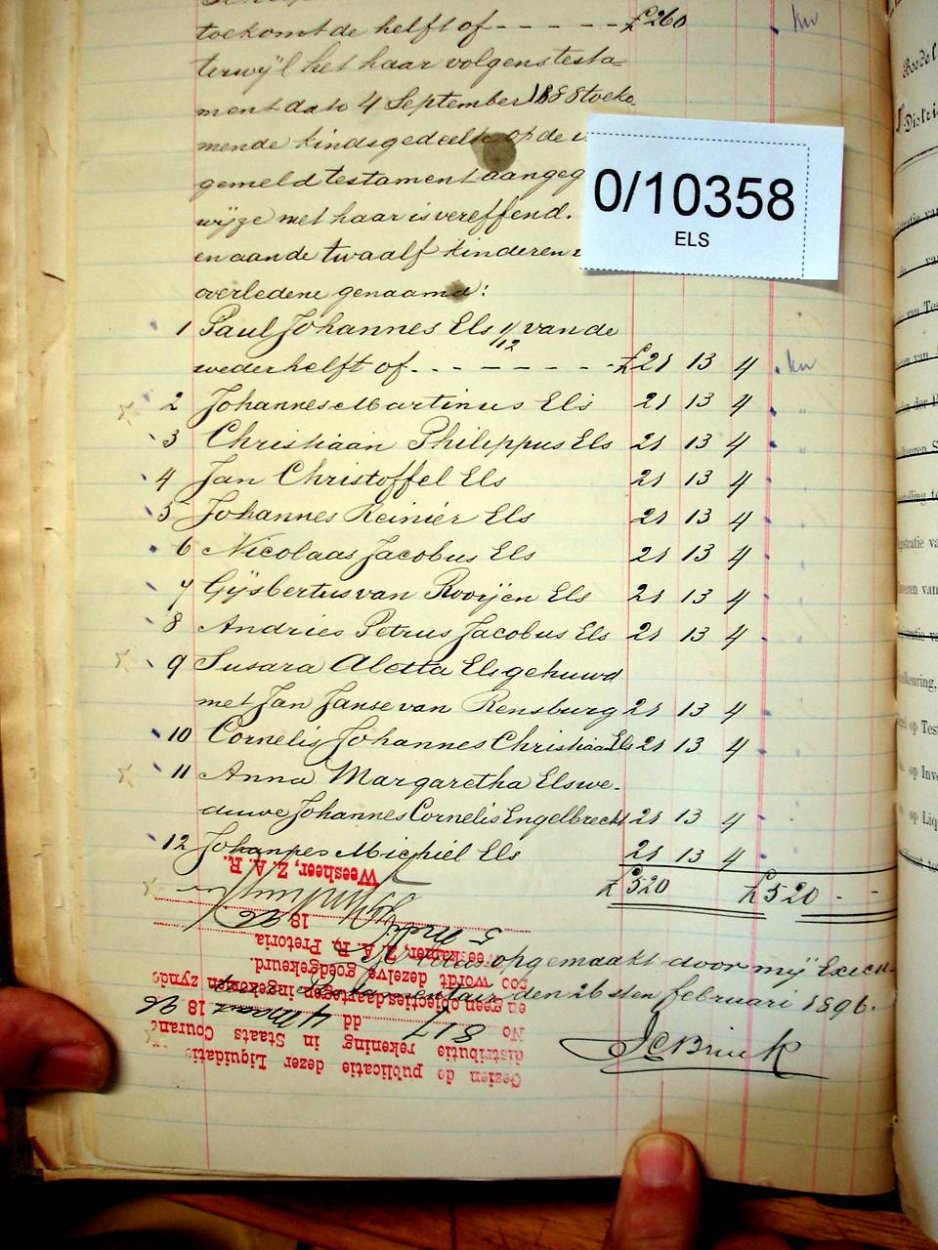 toekomt de helft of - - - - - - £260
terwyl het haar volgens testa-
ment dato 4 September 1888 toeko-
mende kindsgedeelte op de
gemeld testament aangeg
wijze met haar is vereffend.
en aan de twaalf kinderen
overledene genaamd:
1 Paul Johannes Els 1/12 van de
wederhelft of - - - - - - £21 13 4
2 Johannes Martinus Els 21 13 4
3 Christiaan Philippus Els 21 13 4
4 Jan Christoffel Els 21 13 4
5 Johannes Reinier Els 21 13 4
6 Nicolaas Jacobus Els 21 13 4
7 Gijsbertus van Rooijen Els 21 13 4
8 Andries Petrus Jacobus Els 21 13 4
9 Susara Aletta Els gehuwd
met Jan Janse van Rensburg 21 13 4
10 Cornelis Johannes Christiaan Els 21 13 4
11 Anna Margaretha Els we-
duwe Johannes Cornelis Engelbrecht 21 13 4
12 Johannes Michiel Els 21 13 4
£520 £520 - -
opgemaakt door mij Execu-
den 26sten februari 1896.
JC Brink
0/10358
ELS
Gezien de publicatie dezer Liquidatie
distributie rekening in Staats Courant
No 817 dd 4 Maart 18 96
en geen objecties daartegen ingekomen zynde
zoo wordt dezelve goedgekeurd.
Weeskamer, Z. A. R. Pretoria
18 96
Weesheer, Z. A. R.